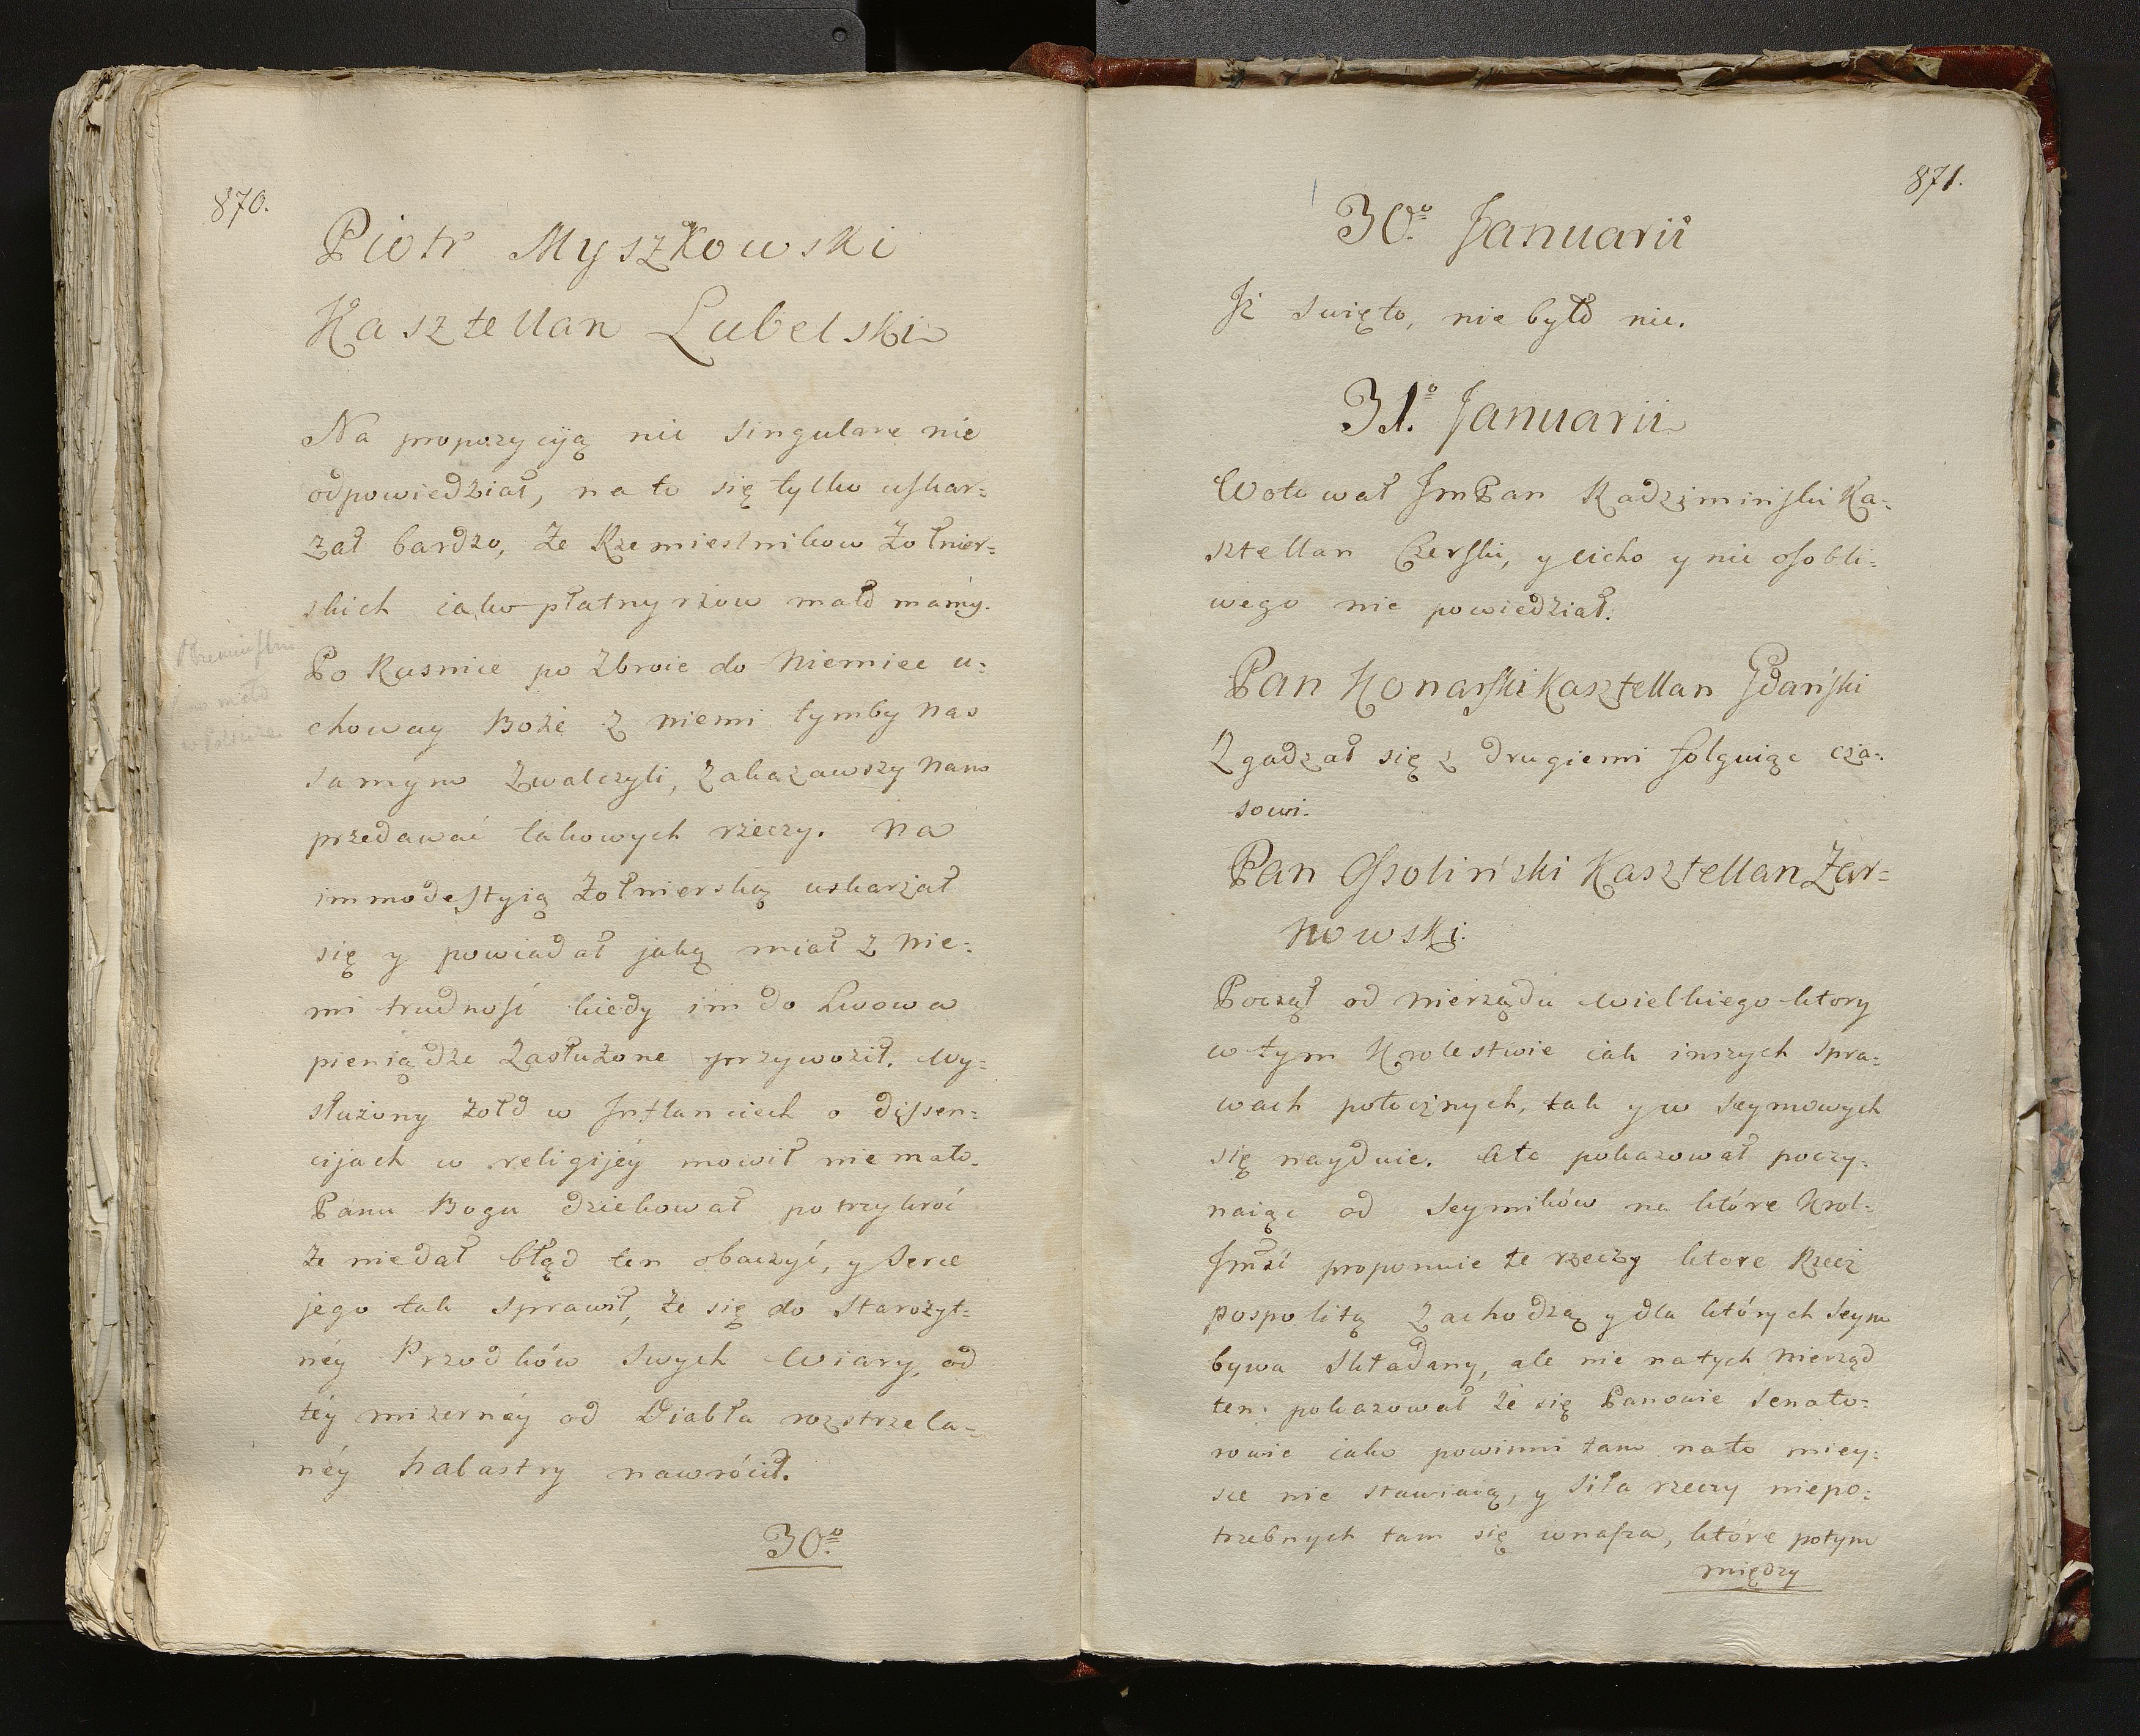 870.
Piotr Myszkowski
Kasztellan Lubelski
Na propozycyią nic singulare nie
odpowiedział, na to się tylko uskar=
żał bardzo, że Rzemiesnikow Żołnier=
skich iako płatnyrzow mało mámy.
Po Kusnie po Zbroie do Niemiec u=
choway Boże z niemi tymby nas
samym zwalczyli, zakazawszy nam
przedawać takowych rzeczy. Na
immodestyią Żołnierską uskarżał
się y powiadał jaką miał z nie=
mi trudność kiedy im do Lwowa
pieniądze zasłużone przywoził. Wy=
służony żołd w Inflanciech o dissen=
cijach w religijéy mowił nie mało.
Panu Bogu dziekował po trzykroć
że mie dał błąd ten obaczyć, y serce
jego tak sprawił, że się do Starożyt=
néy Przodków swych Wiary, od
téy mizernéy od Diabła rozstrzela=
néy halastry nawrócił.
30º
871.
30º Januarii
Iż swięto, nie było nic.
31º Januarii
Wotował ImPan Radziminski Ka=
sztellan Czerski, y cicho y nic osobli=
wego nie powiedział.
Pan Konarski Kasztellan Gdański
Zgadzał się z drugiemi folguiąc cza=
sowi.
Pan Ossoliński Kasztellan Żar=
nowski.
Począł od nierządu wielkiego ktory
w tym Krolestwie iak inszych spra=
wach potocznych, tak y w Seymowych
się nayduie. A to pokazował poczy=
naiąc od Seymików na które Krol=
Imść proponuie te rzeczy ktore Rzecz
pospolitą zachodzą y dla których Seym
bywa składany, ale nie na tych nierząd
ten pokazował że się Panowie Senato=
rowie iako powinni tam na to miey=
sce nie stawiaią, y siła rzeczy niepo=
trzebnych tam się wnasza, które potym
między